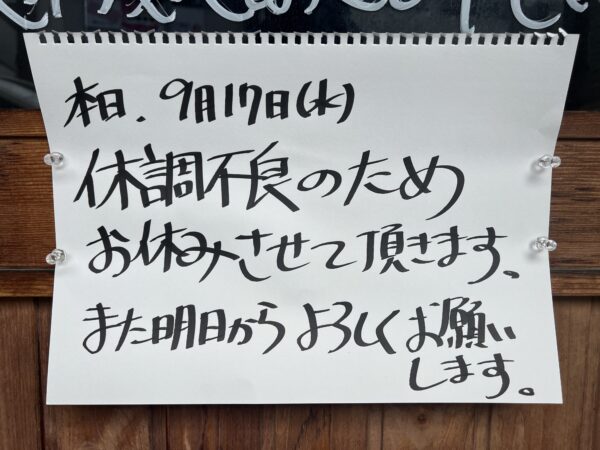 本日、9月17日(水)
体調不良のため
お休みさせて頂きます。
また明日からよろしくお願い
します。